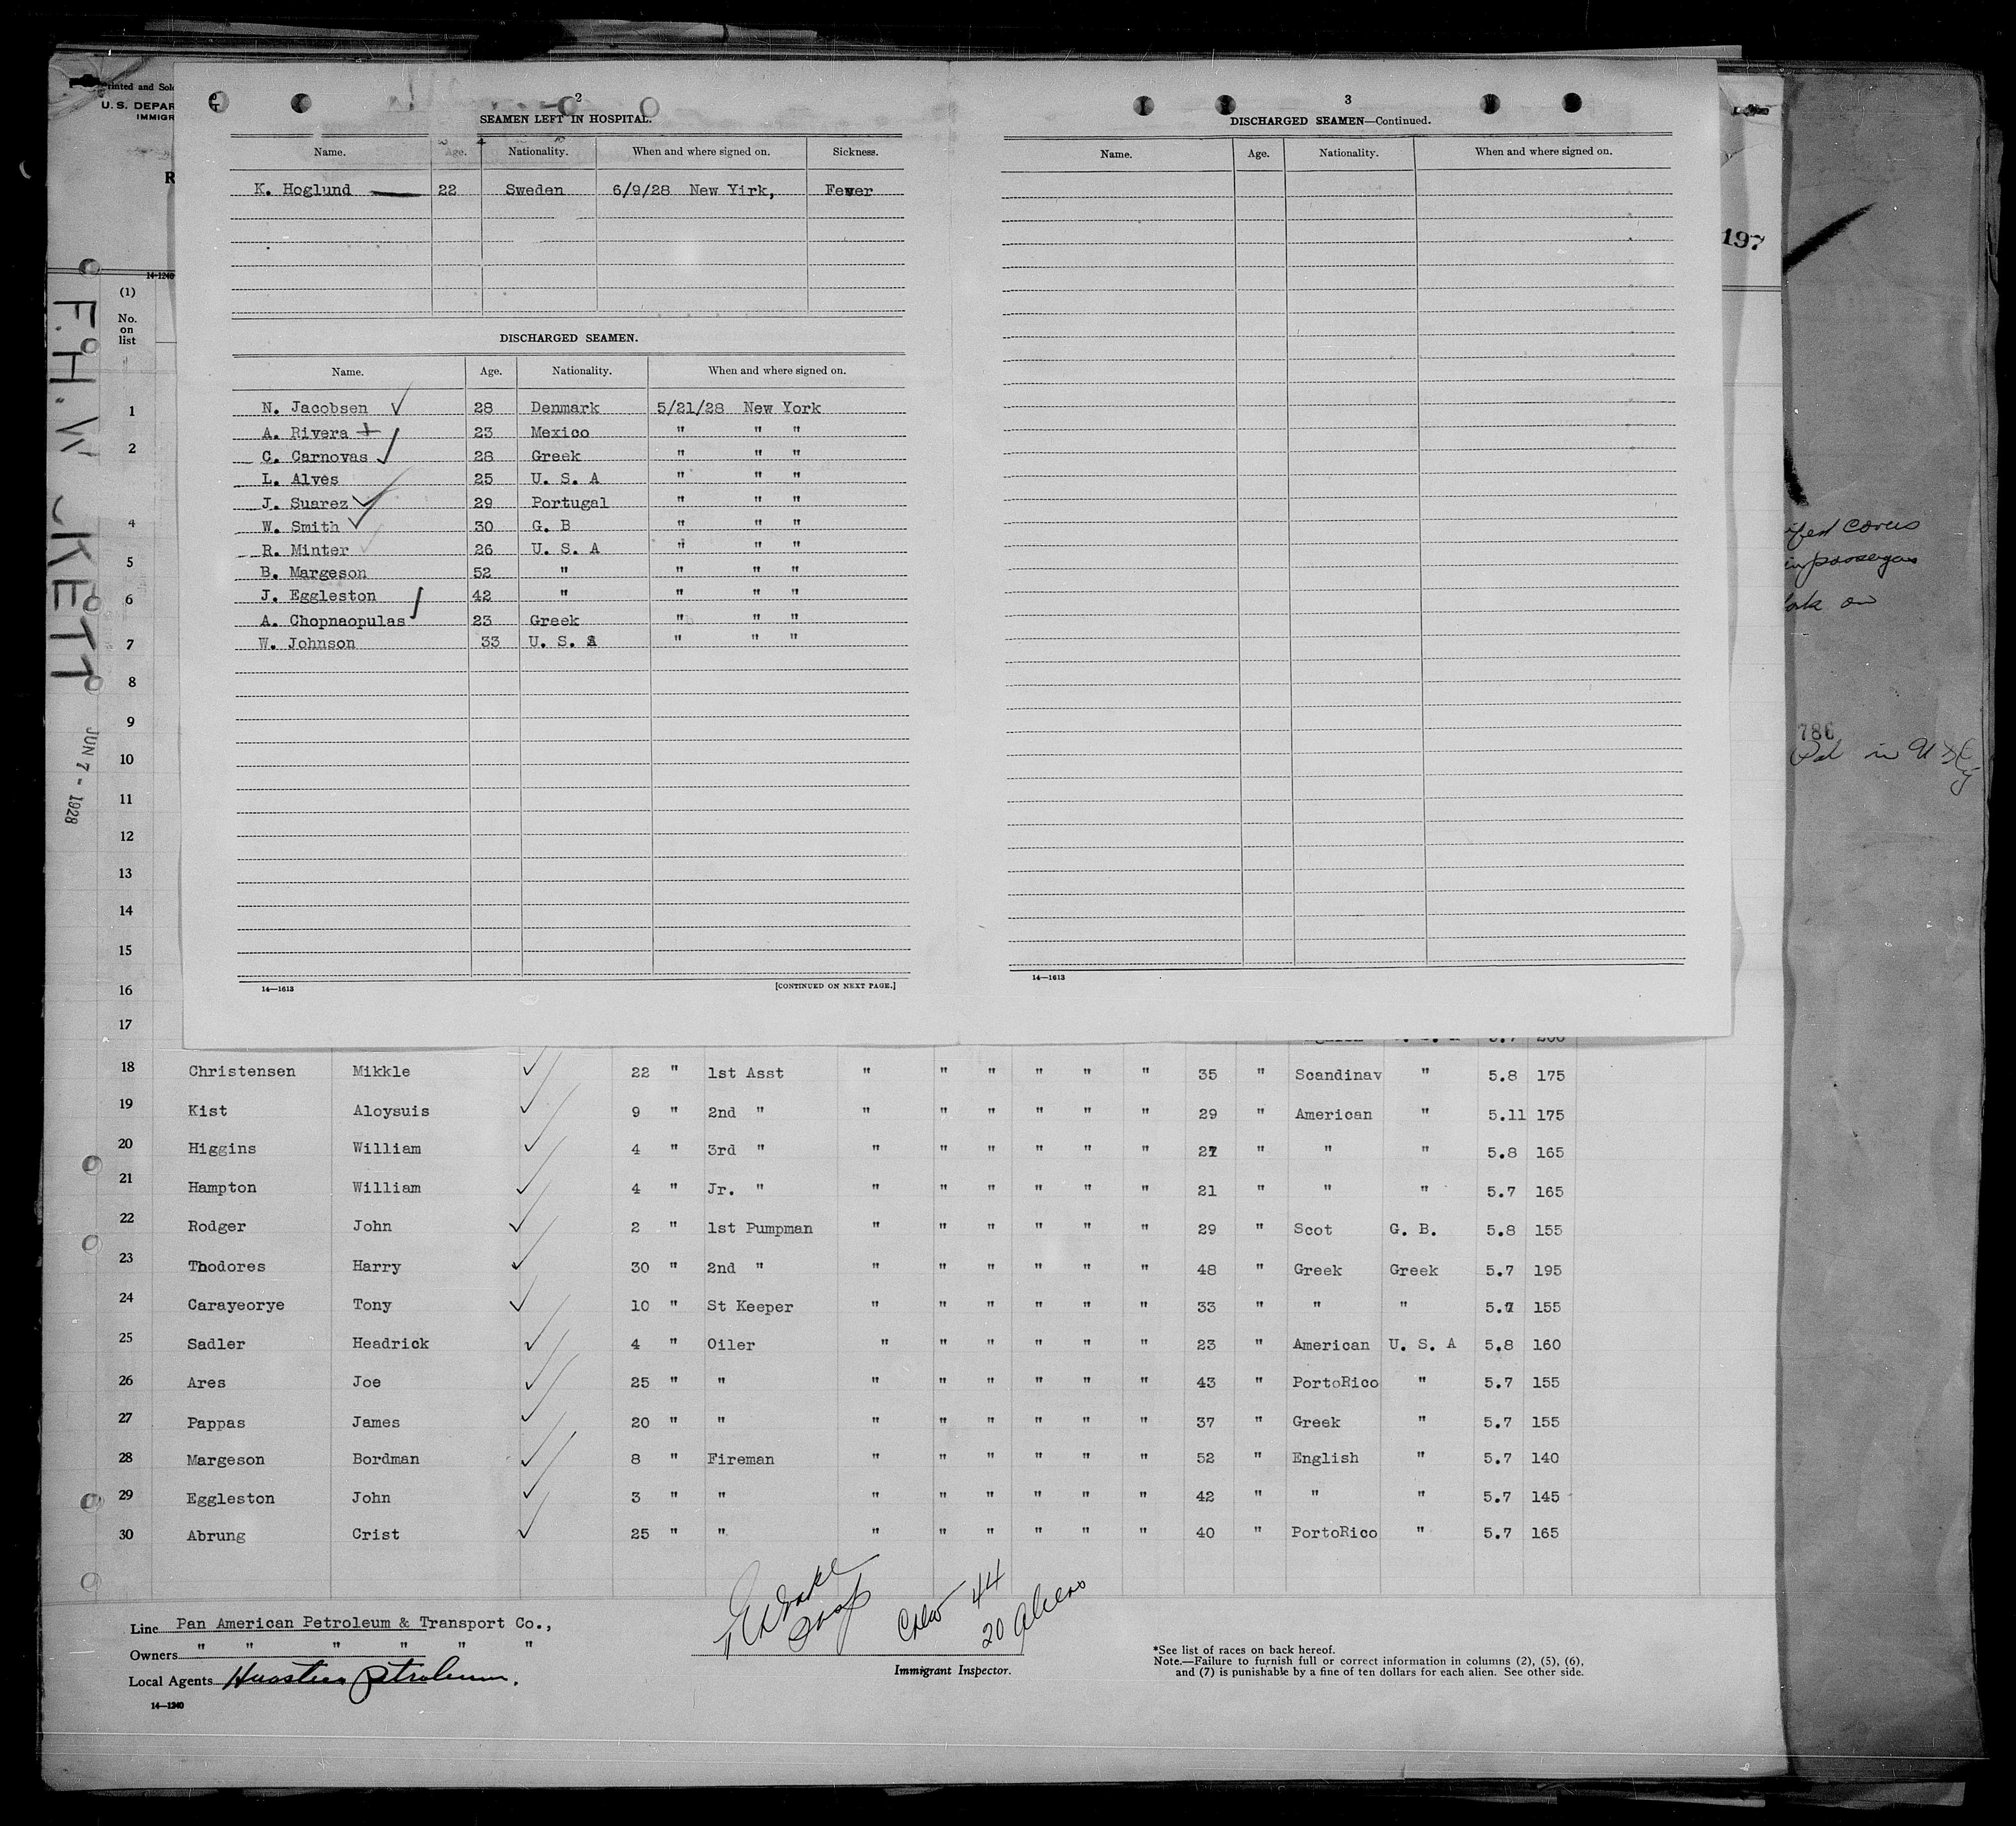 2
SEAMEN LEFT IN HOSPITAL.
Name. Age. Nationality. When and where signed on. Sickness.
K. Hoglund 22 Sweden 6/9/28 New Yirk, Fever
DISCHARGED SEAMEN.
Name. Age. Nationality. When and where signed on.
N. Jacobsen 28 Denmark 5/21/28 New York
A. Rivera 23 Mexico " " "
C. Carnovas 28 Greek " " "
L. Alves 25 U. S. A " " "
J. Suarez 29 Portugal " " "
W. Smith 30 G. B " " "
R. Minter 26 U. S. A " " "
B. Margeson 52 " " " "
J. Eggleston 42 " " " "
A. Chopnaopulas 23 Greek " " "
W. Johnson 33 U. S. A " " "
14—1613 [CONTINUED ON NEXT PAGE.]
3
DISCHARGED SEAMEN—Continued.
Name. Age. Nationality. When and where signed on.
14—1613
Printed and Sol
U. S. DEPAR
IMMIGR
R
14-1240
197
(1)
No.
on
list
1
2
4
5
6
7
8
9
10
11
12
13
14
15
16
17
JUN 7 - 1928
786
18 Christensen Mikkle 22 " 1st Asst " " " " " " 35 " Scandinav " 5.8 175
19 Kist Aloysuis 9 " 2nd " " " " " " " 29 " American " 5.11 175
20 Higgins William 4 " 3rd " " " " " " " 27 " " " 5.8 165
21 Hampton William 4 " Jr. " " " " " " " 21 " " " 5.7 165
22 Rodger John 2 " 1st Pumpman " " " " " " 29 " Scot G. B. 5.8 155
23 Thodores Harry 30 " 2nd " " " " " " " 48 " Greek Greek 5.7 195
24 Carayeorye Tony 10 " St Keeper " " " " " " 33 " " " 5.7 155
25 Sadler Headrick 4 " Oiler " " " " " " 23 " American U. S. A 5.8 160
26 Ares Joe 25 " " " " " " " " 43 " PortoRico " 5.7 155
27 Pappas James 20 " " " " " " " " 37 " Greek " 5.7 155
28 Margeson Bordman 8 " Fireman " " " " " " 52 " English " 5.7 140
29 Eggleston John 3 " " " " " " " " 42 " " " 5.7 145
30 Abrung Crist 25 " " " " " " " " 40 " PortoRico " 5.7 165
Line Pan American Petroleum & Transport Co.,
Owners " " " " " "
Local Agents Huasteca Petroleum.
14—1240
Crew 44
20 Aliens
Immigrant Inspector.
*See list of races on back hereof.
Note.—Failure to furnish full or correct information in columns (2), (5), (6),
and (7) is punishable by a fine of ten dollars for each alien. See other side.